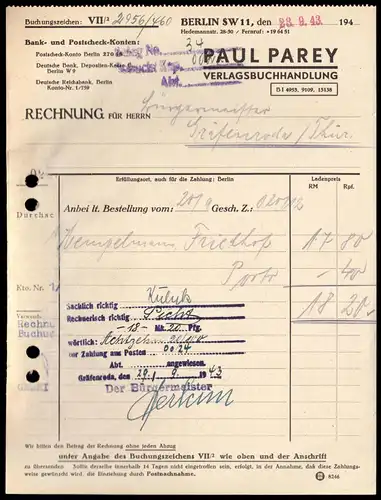 Buchungszeichen: VII/2 2956/460
BERLIN SW 11, den 23. 9. 43 194
Hedemannstr. 28-30 / Fernruf: +19 64 51
Bank- und Postscheck-Konten:
Postscheck-Konto Berlin
Deutsche Bank, Depositen-Kasse
Berlin W 9
Deutsche Reichsbank, Berlin
Konto-Nr. 1/759
34
Abt.
PAUL PAREY
VERLAGSBUCHHANDLUNG
RECHNUNG FÜR HERRN
Bürgermeister
Gräfenroda / Thür.
Erfüllungsort, auch für die Zahlung: Berlin
Ladenpreis
RM Rpf.
Anbei lt. Bestellung vom: 20/9 Gesch. Z.:
Durchsc
Friedhof 17 80
Porto - 40
18 20
Kto. Nr.
Rechnu
Buchu
Sachlich richtig
Rechnerisch richtig
-18- Mk. 20 Pfg.
wörtlich: Achtzehn 20/100
zur Zahlung aus Posten
00 24
Abt. angewiesen.
Gräfenroda, den 29. 9. 1943
Der Bürgermeister
Wir bitten den Betrag der Rechnung ohne jeden Abzug
unter Angabe des Buchungszeichens VII/2 wie oben und der Anschrift
zu übersenden. Sollte derselbe innerhalb 14 Tagen nicht eingetroffen sein, erfolgt, in der Annahme, daß diese Zahlungs-
weise gewünscht wird, die Einziehung durch Postnachnahme.
8246